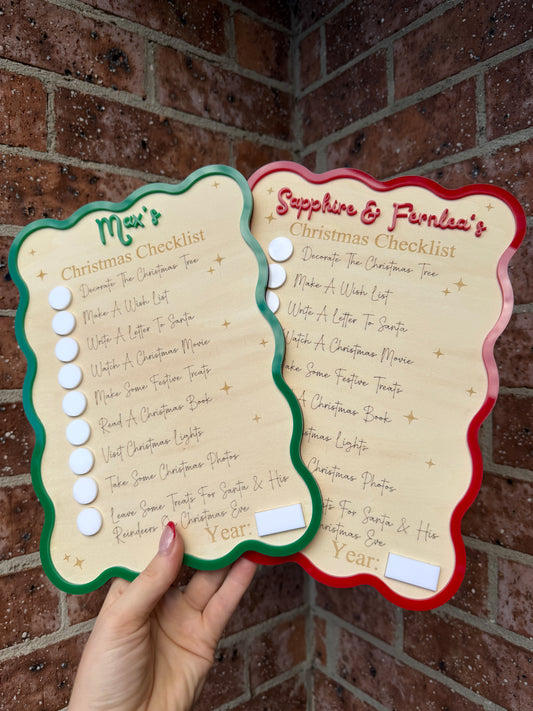 Max's
Christmas Checklist
Decorate The Christmas Tree
Make A Wish List
Write A Letter To Santa
Watch A Christmas Movie
Make Some Festive Treats
Read A Christmas Book
Visit Christmas Lights
Take Some Christmas Photos
Leave Some Treats For Santa & His
Reindeers & Christmas Eve
Year:
Sapphire & Fernlea's
Christmas Checklist
Decorate The Christmas Tree
Make A Wish List
Write A Letter To Santa
Watch A Christmas Movie
Make Some Festive Treats
A Christmas Book
Christmas Lights
Christmas Photos
For Santa & His
Christmas Eve
Year: